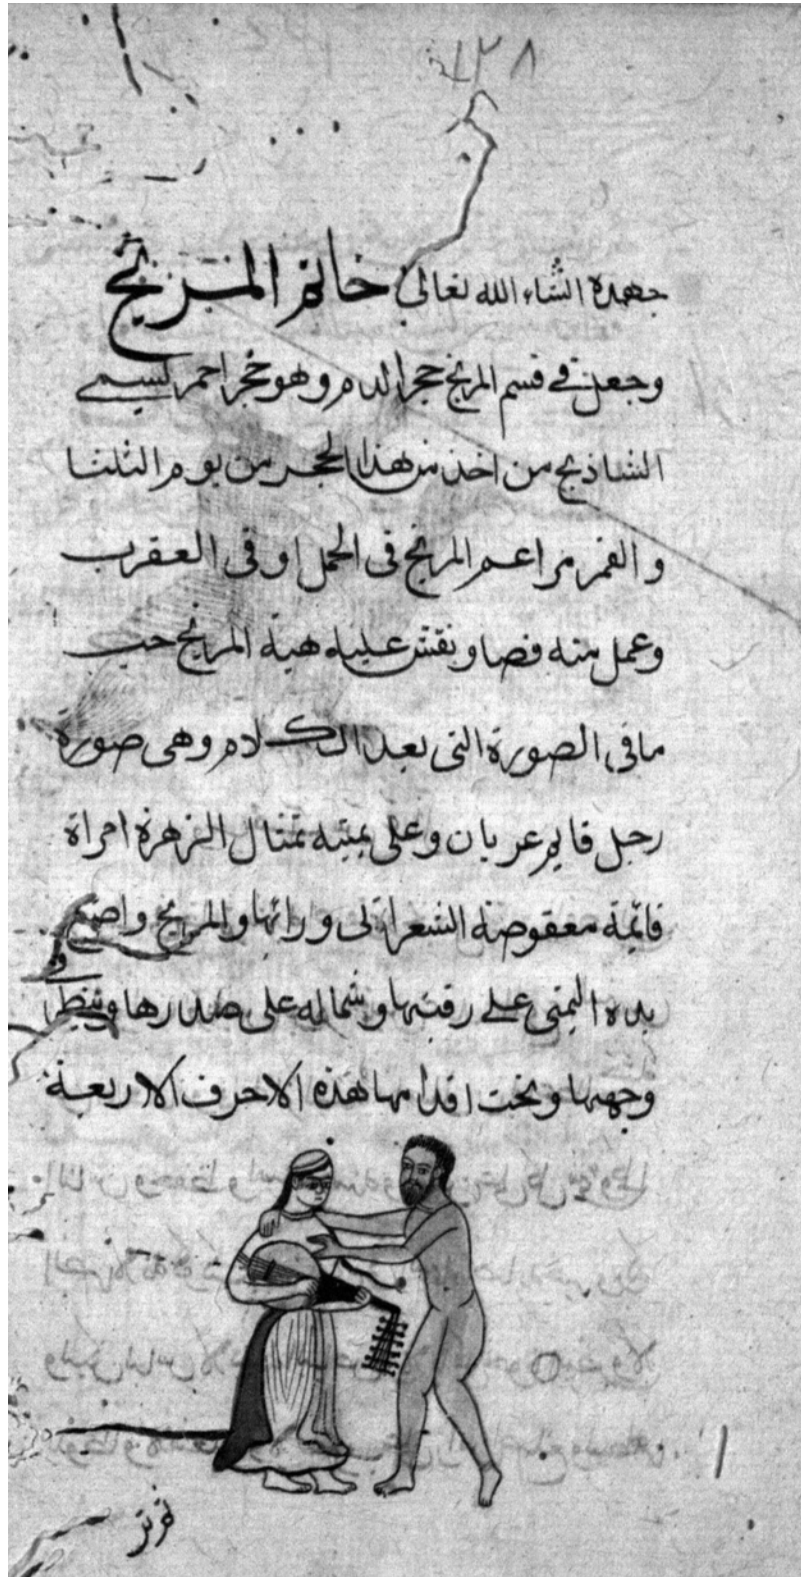 ١٣٨
جهده انشاء الله تعالى خاتم المريخ
وجعل في قسم المريخ حجر الدم وهو حجر احمر يسمى
الشاذنج من اخذ من هذا الحجر من يوم الثلثا
و القمر مراعم المريخ في الحمل او في العقرب
وعمل منه فصا و نقش عليه هية المريخ حسب
ما في الصورة التي بعد الكلام وهي صورة
رجل قايم عريان وعلى يمينه تمثال الزهرة امراة
قائمة معقوصة الشعر الى ورائها والمريخ واضع
يده اليمنى على رقبتها وشماله على صدرها وينظر في
وجهها وتحت اقدامها هذه الاحرف الاربعة